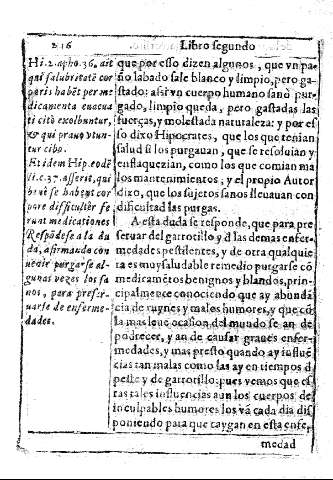 216 Libro segundo
Hi. 2. apho. 36. ait
qui salubritatē cor
poris habēt per me
dicamenta euacua
ti citò exolbuntur,
& qui prauo vtun-
tur cibo.
Et idem Hip. eodē
li. c. 37. asserit, qui
benè se habent cor
pore difficultèr fe
runt medicationes
Respōdese a la du
da, afirmando con
uenir purgarse al
gunas vezes los sa
nos, para preser-
uarse de enferme-
dades.
que por esso dizen algunos, que vn pa
ño labado sale blanco y limpio, pero ga-
stado: assi vn cuerpo humano sano pur-
gado, limpio queda, pero gastadas las
fuerças, y molestada naturaleza: y por es-
so dixo Hipocrates, que los que tenian
salud si los purgauan, que se resoluian y
enflaquezian, como los que comian ma
los mantenimientos, y el propio Autor
dixo, que los sujetos sanos lleuauan con
dificultad las purgas.
A esta duda se responde, que para pre
seruar del garrotillo y d las demas enfer-
medades pestilentes, y de otra qualquie
ra es muy saludable remedio purgarse cō
medicamētos benignos y blandos, prin-
cipalmente conociendo que ay abundā
cia de ruynes y males humores, y que cō
la mas leue ocasion del mundo se an de
podrecer, y an de causar graues enfer-
medades, y mas presto quando ay influē
cias tan malas como las ay en tiempos d
peste y de garrotillo: pues vemos que es
tas tales influencias aun los cuerpos de
inculpables humores los vá cada dia dis
poniendo para que caygan en esta enfer,
medad